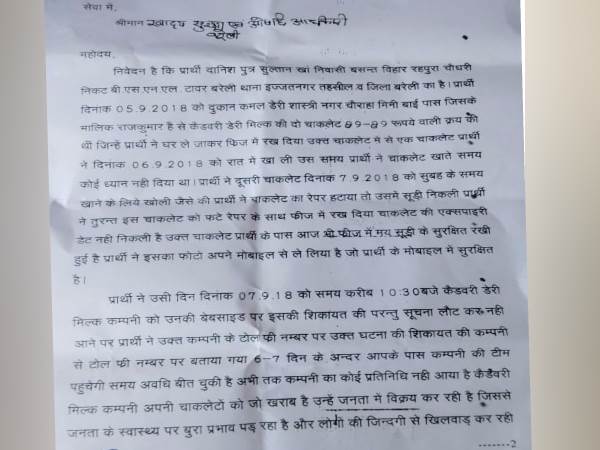 सेवा में,
श्रीमान खाद्य सुरक्षा एवं औषधि अधिकारी
बरेली
महोदय,
निवेदन है कि प्रार्थी दानिश पुत्र सुल्तान खां निवासी बसन्त विहार रहपुरा चौधरी
निकट बी.एस.एन.एल. टावर बरेली थाना इज्जतनगर तहसील व जिला बरेली का है। प्रार्थी
दिनांक 05.9.2018 को दुकान कमल डेरी शास्त्री नगर चौराहा मिनी बाई पास जिसके
मालिक राजकुमार है से कैडवरी डेरी मिल्क की दो चाकलेट 89-89 रूपये वाली क्रय की
थीं जिन्हें प्रार्थी ने घर ले जाकर फिज में रख दिया उक्त चाकलेट में से एक चाकलेट प्रार्थी
ने दिनांक 06.9.2018 को रात में खा ली उस समय प्रार्थी ने चाकलेट खाते समय
कोई ध्यान नही दिया था। प्रार्थी ने दूसरी चाकलेट दिनांक 7.9.2018 को सुबह के समय
खाने के लिये खोली जैसे की प्रार्थी ने चाकलेट का रेपर हटाया तो उसमें सूडी निकली प्रार्थी
ने तुरन्त इस चाकलेट को फटे रेपर के साथ फीज में रख दिया चाकलेट की एक्सपाइरी
डेट नही निकली है उक्त चाकलेट प्रार्थी के पास आज भी फीज में मय सूडी के सुरक्षित रखी
हुई है प्रार्थी ने इसका फोटो अपने मोबाइल से ले लिया है जो प्रार्थी के मोबाइल में सुरक्षित
है।
प्रार्थी ने उसी दिन दिनांक 07.9.18 को समय करीब 10:30बजे कैडवरी डेरी
मिल्क कम्पनी को उनकी बेबसाइड पर इसकी शिकायत की परन्तु सूचना लौट कर नही
आने पर प्रार्थी ने उक्त कम्पनी के टोल फ्री नम्बर पर उक्त घटना की शिकायत की कम्पनी
से टोल फ्री नम्बर पर बताया गया 6-7 दिन के अन्दर आपके पास कम्पनी की टीम
पहुचेगी समय अवधि बीत चुकी है अभी तक कम्पनी का कोई प्रतिनिधि नही आया है कैडैवरी
मिल्क कम्पनी अपनी चाकलेटों को जो खराब है उन्हें जनता में विक्रय कर रही है जिससे
जनता के स्वास्थ्य पर बुरा प्रभाव पड़ रहा है और लोगों की जिन्दगी से खिलवाड़ कर रही
-------2